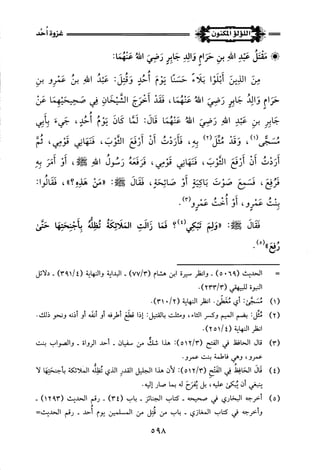 اللؤلؤ المكنون
غزوة أحد
* مَقْتَلُ عَبْدِ اللهِ بْنِ حَرَامٍ وَالِدِ جَابِرٍ رَضِيَ اللهُ عَنْهُمَا:
مِنَ الذِينَ أَبْلَوْا بَلَاءً حَسَنًا يَوْمَ أُحُدٍ وَقُتِلَ: عَبْدُ اللهِ بْنُ عَمْرِو بْنِ
حَرَامٍ وَالِدُ جَابِرٍ رَضِيَ اللهُ عَنْهُمَا، فَقَدْ أَخْرَجَ الشَّيْخَانِ فِي صَحِيحَيْهِمَا عَنْ
جَابِرِ بْنِ عَبْدِ اللهِ رَضِيَ اللهُ عَنْهُمَا قَالَ: لَمَّا كَانَ يَوْمُ أُحُدٍ، جِيءَ بِأَبِي
مُسَجًّى(١)، وَقَدْ مُثِّلَ(٢) بِهِ، فَأَرَدْتُ أَنْ أَرْفَعَ الثَّوْبَ، فَنَهَانِي قَوْمِي، ثُمَّ
أَرَدْتُ أَنْ أَرْفَعَ الثَّوْبَ، فَنَهَانِي قَوْمِي، فَرَفَعَهُ رَسُولُ اللهِ ﷺ، أَوْ أَمَرَ بِهِ
فَرُفِعَ، فَسَمِعَ صَوْتَ بَاكِيَةٍ أَوْ صَائِحَةٍ، فَقَالَ ﷺ: «مَنْ هَذِهِ؟»، فَقَالُوا:
بِنْتُ عَمْرٍو، أَوْ أُخْتُ عَمْرٍو(٣).
فَقَالَ ﷺ: «وَلِمَ تَبْكِي(٤)؟ فَمَا زَالَتِ المَلَائِكَةُ تُظِلُّهُ بِأَجْنِحَتِهَا حَتَّى
رُفِعَ»(٥).
= الحديث (٥٠٦٩) - وانظر سيرة ابن هشام (٧٧/٣) - البداية والنهاية (٣٩١/٤) - دلائل
النبوة للبيهقي (٢٣٣/٣).
(١) مُسَجًّى: أي مُغَطًّى. انظر النهاية (٣١٠/٢).
(٢) مُثِّلَ: بضم الميم وكسر الثاء، ومثلت بالقتيل: إذا قطع أطرافه أو أنفه أو أذنه ونحو ذلك.
انظر النهاية (٢٥١/٤).
(٣) قال الحافظ في الفتح (٥١٢/٣): هذا شك من سفيان - أحد الرواة - والصواب بنت
عمرو، وهي فاطمة بنت عمرو.
(٤) قَالَ الحَافِظُ فِي الفَتْحِ (٥١٢/٣): لأن هذا الجليل القدر الذي تُظِلُّه الملائكة بأجنحتها لا
ينبغي أن يُبْكَى عليه، بل يُفرَح له بما صار إليه.
(٥) أخرجه البخاري في صحيحه - كتاب الجنائز - باب (٣٤) - رقم الحديث (١٢٩٣) -
وأخرجه في كتاب المغازي - باب من قُتِل من المسلمين يوم أحد - رقم الحديث=
٥٩٨